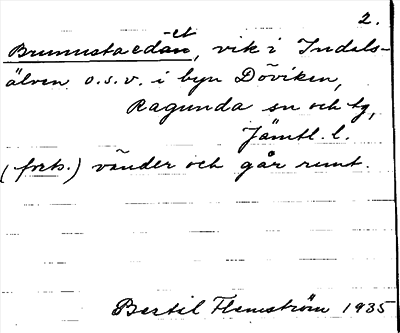 2.
Brunnstaedänet, vik i Indals-
älven o.s.v. i byn Döviken,
Ragunda sn och tg,
Jämtl. l.
(forts.) vänder och går runt.
Bertil Flemström 1935